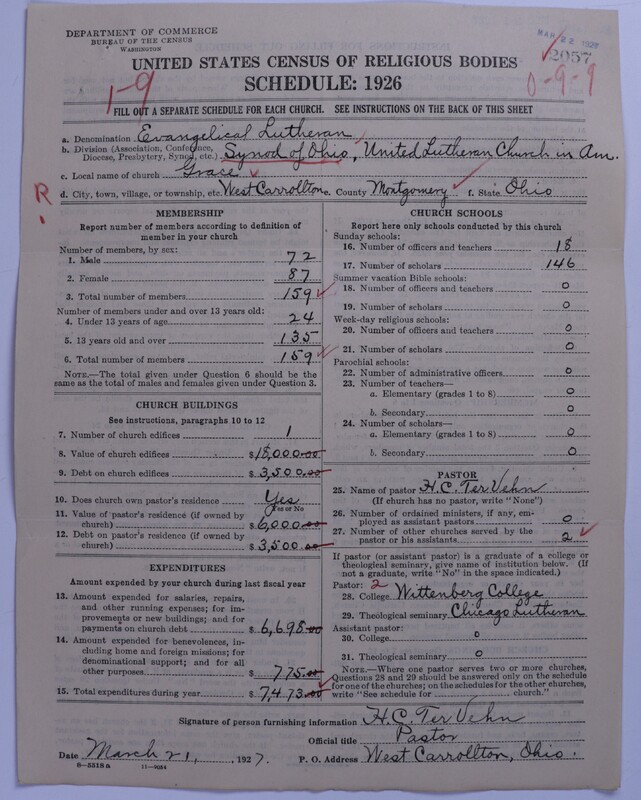 DEPARTMENT OF COMMERCE
BUREAU OF THE CENSUS
WASHINGTON
MAR 22 1927
2057
UNITED STATES CENSUS OF RELIGIOUS BODIES
SCHEDULE: 1926
1-9
0-9-9
FILL OUT A SEPARATE SCHEDULE FOR EACH CHURCH. SEE INSTRUCTIONS ON THE BACK OF THIS SHEET
a. Denomination Evangelical Lutheran
b. Division (Association, Conference, Diocese, Presbytery, Synod, etc.) Synod of Ohio, United Lutheran Church in Am.
c. Local name of church Grace
R
d. City, town, village, or township, etc. West Carrollton e. County Montgomery f. State Ohio
MEMBERSHIP
Report number of members according to definition of
member in your church
Number of members, by sex:
1. Male 72
2. Female 87
3. Total number of members 159
Number of members under and over 13 years old:
4. Under 13 years of age 24
5. 13 years old and over 135
6. Total number of members 159
NOTE.—The total given under Question 6 should be
same as the total of males and females given under Question 3.
CHURCH BUILDINGS
See instructions, paragraphs 10 to 12
7. Number of church edifices 1
8. Value of church edifices $18,000.00
9. Debt on church edifices $3,500.00
10. Does church own pastor's residence Yes
Yes or No
11. Value of pastor's residence (if owned by
church) $6,000.00
12. Debt on pastor's residence (if owned by
church) $3,500.00
EXPENDITURES
Amount expended by your church during last fiscal year
13. Amount expended for salaries, repairs,
and other running expenses; for im-
provements or new buildings; and for
payments on church debt $6,698.00
14. Amount expended for benevolences, in-
cluding home and foreign missions; for
denominational support; and for all
other purposes $775.00
15. Total expenditures during year $7,473.00
CHURCH SCHOOLS
Report here only schools conducted by this church
Sunday schools:
16. Number of officers and teachers 18
17. Number of scholars 146
Summer vacation Bible schools:
18. Number of officers and teachers 0
19. Number of scholars 0
Week-day religious schools:
20. Number of officers and teachers 0
21. Number of scholars 0
Parochial schools:
22. Number of administrative officers 0
23. Number of teachers—
a. Elementary (grades 1 to 8) 0
b. Secondary 0
24. Number of scholars—
a. Elementary (grades 1 to 8) 0
b. Secondary 0
PASTOR
25. Name of pastor H.C. Ter Vehn
(If church has no pastor, write "None")
26. Number of ordained ministers, if any, em-
ployed as assistant pastors 0
27. Number of other churches served by the
pastor or his assistants 2
If pastor (or assistant pastor) is a graduate of a college or
theological seminary, give name of institution below. (If
not a graduate, write "No" in the space indicated.)
Pastor: 2
28. College Wittenberg College
29. Theological seminary Chicago Lutheran
Assistant pastor:
30. College 0
31. Theological seminary 0
NOTE.—Where one pastor serves two or more churches,
Questions 28 and 29 should be answered only on the schedule
for one of the churches; on the schedules for the other churches,
write "See schedule for church."
Signature of person furnishing information H.C. Ter Vehn
Official title Pastor
Date March 21, 1927. P. O. Address West Carrollton, Ohio.
8-5518a 11-9054